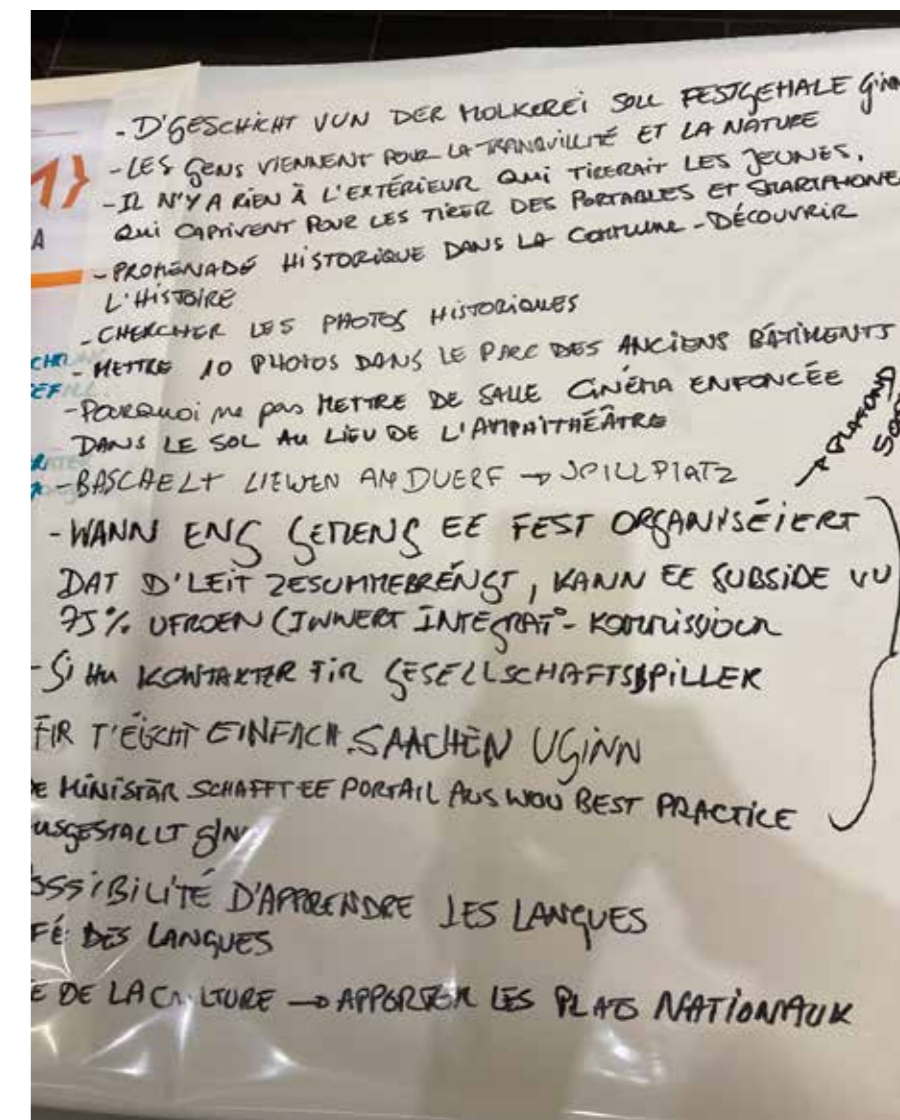 - D'GESCHICHT VUN DER MOLKEREI SOLL FESTGEHALE GINN
- LES GENS VIENNENT POUR LA TRANQUILLITÉ ET LA NATURE
- IL N'Y A RIEN À L'EXTÉRIEUR QUI TIRERAIT LES JEUNES,
QUI CAPTIVENT POUR LES TIRER DES PORTABLES ET SMARTPHONE
- PROMENADE HISTORIQUE DANS LA COMMUNE - DÉCOUVRIR
L'HISTOIRE
- CHERCHER LES PHOTOS HISTORIQUES
- METTRE 10 PHOTOS DANS LE PARC DES ANCIENS BÂTIMENTS
- POURQUOI ne pas METTRE DE SALLE CINÉMA ENFONCÉE
DANS LE SOL AU LIEU DE L'AMPHITHÉÂTRE
→ PLAFOND
- BASCHAELT LIEWEN AM DUERF → SPILLPLATZ
- WANN ENG GEMENG EE FEST ORGANISÉIERT
DAT D'LEIT ZESUMMEBRÉNGT, KANN EE SUBSIDE VU
75% UFROEN (INNERT INTEGRAT° - KOMMISSIOUN
- SI HU KONTAKTER FIR GESELLSCHAFTSSPILLER
FIR T'ÉISCHT EINFACH SAACHEN UGINN
E MINISTÄR SCHAFFT EE PORTAIL AUS WOU BEST PRACTICE
USGESTALLT GINN
OSSIBILITÉ D'APPRENDRE LES LANGUES
FÉ DES LANGUES
E DE LA CULTURE → APPORTER LES PLATS NATIONAUX
1}
A